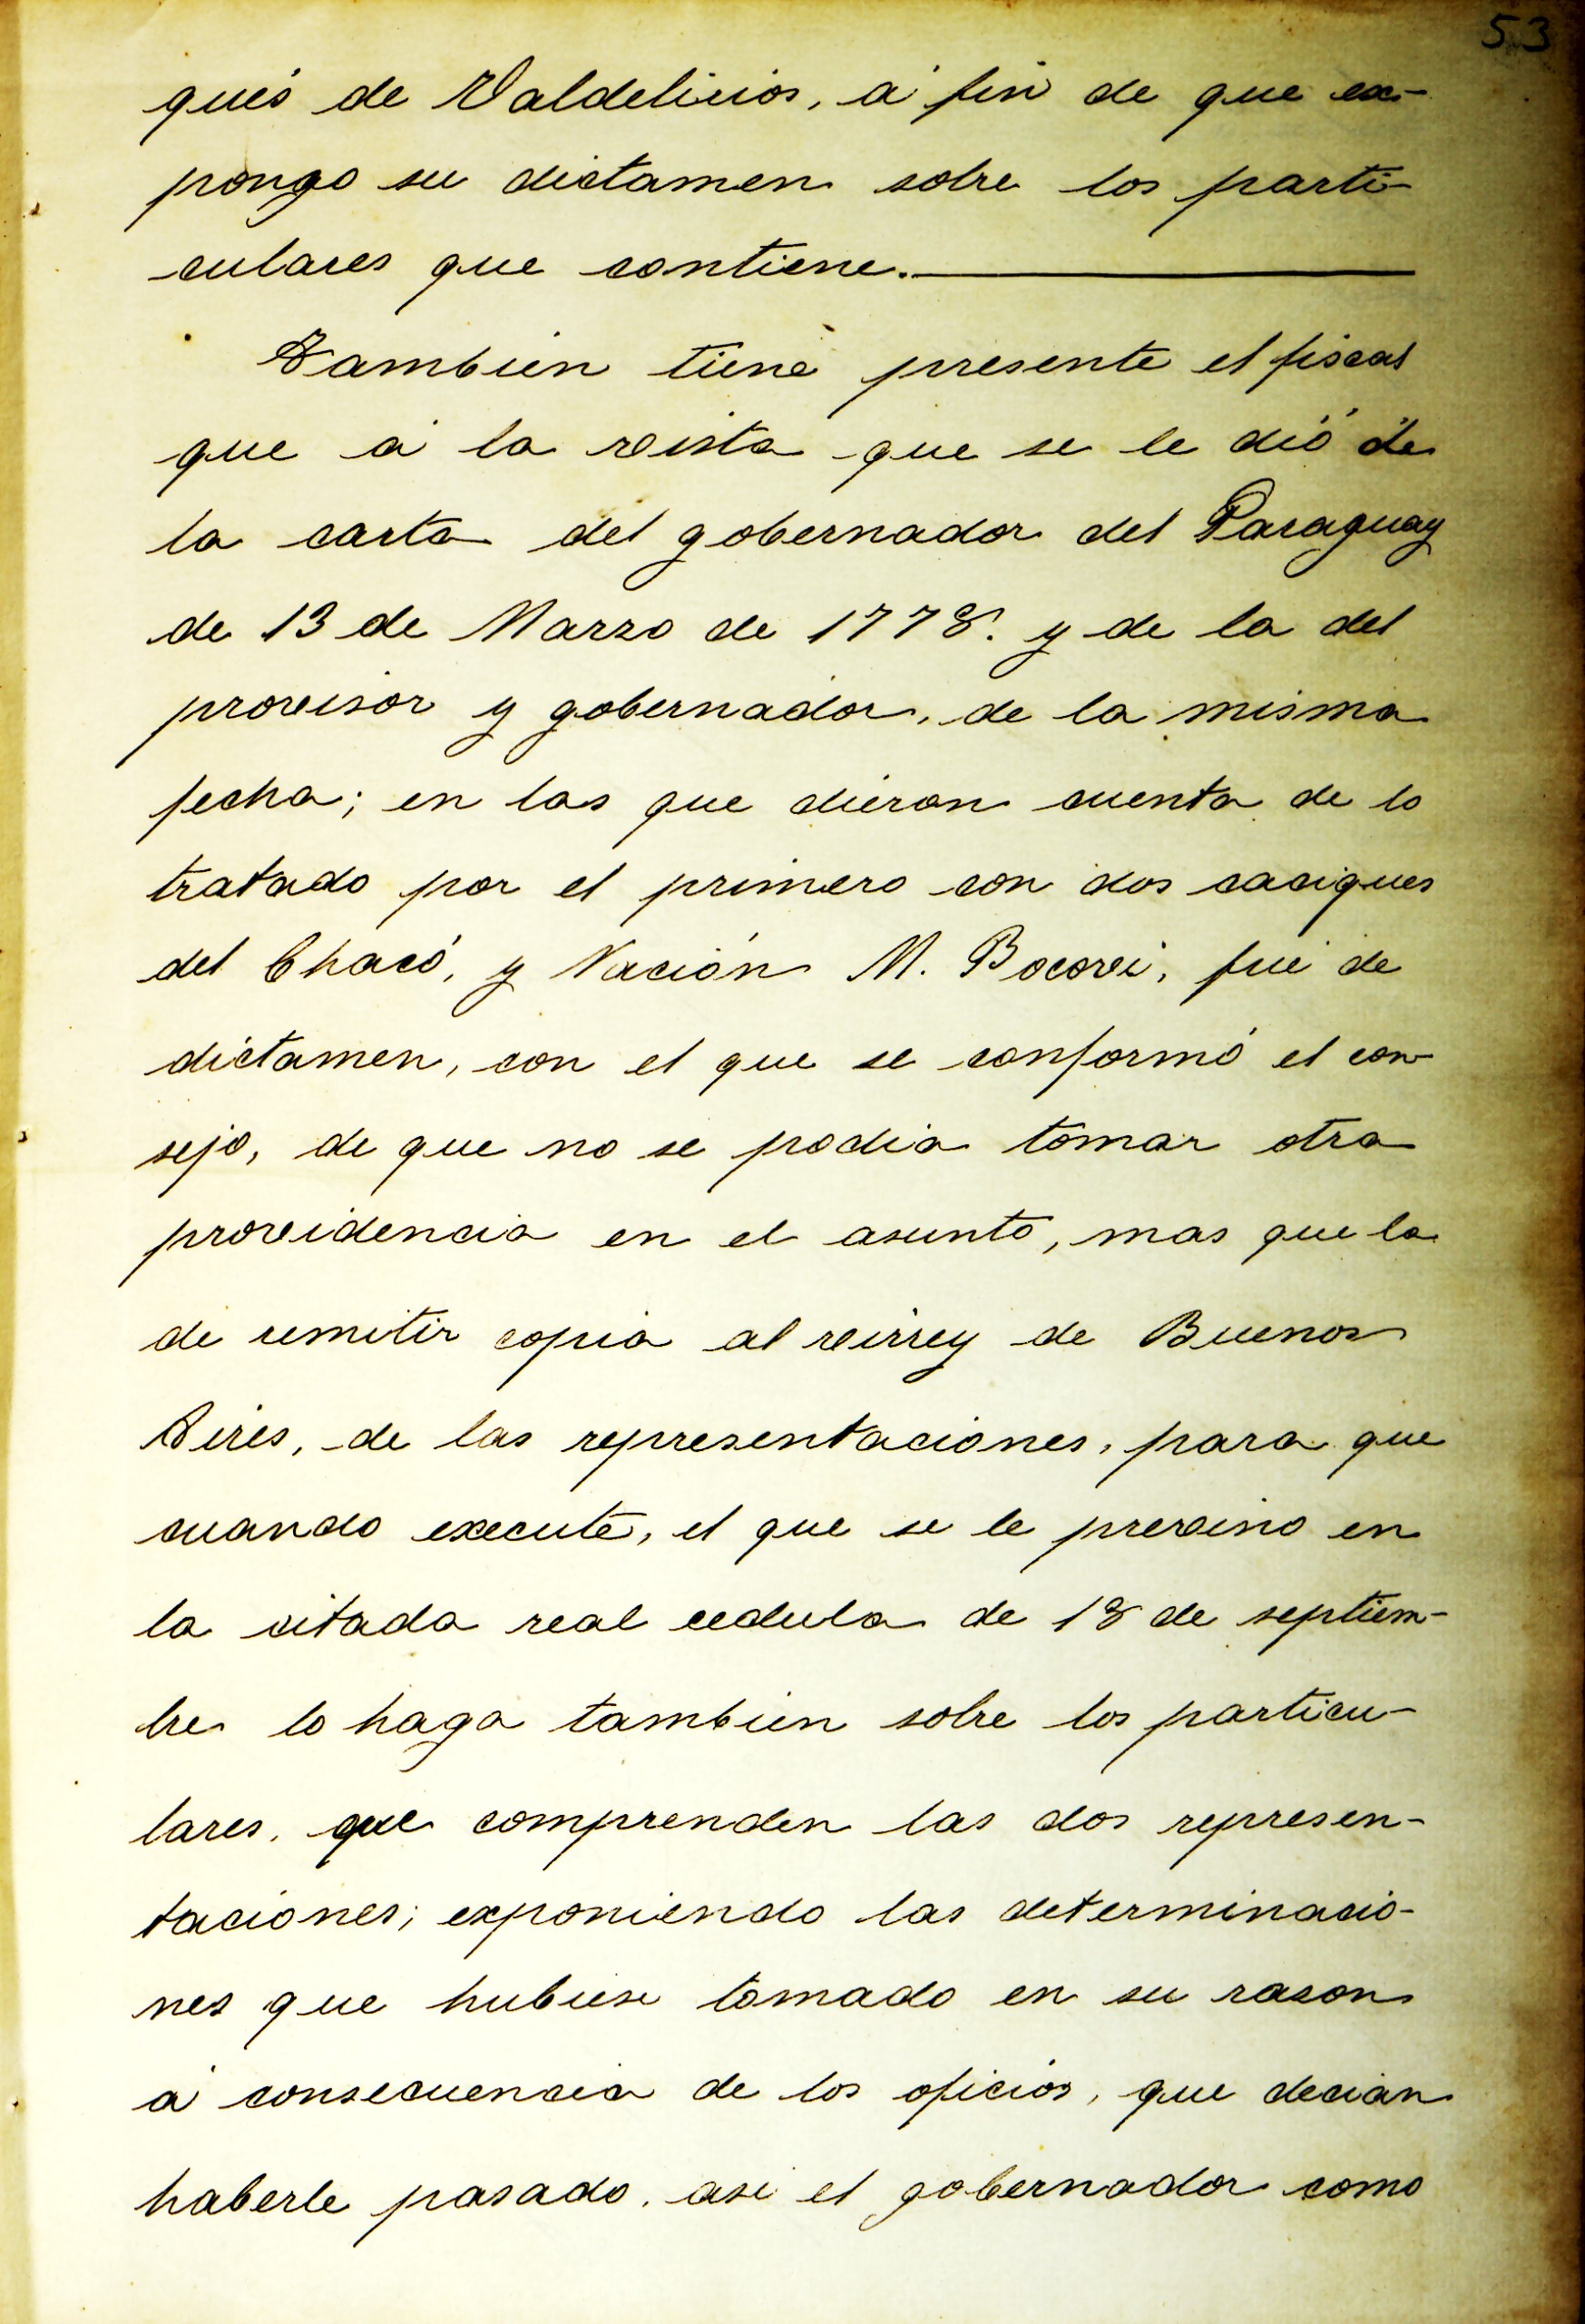 53
qués de Valdelirios, á fin de que ex-
pongo su dictamen sobre los parti-
culares que contiene.
Tambien tiene presente el fiscal
que á la vista que se le dió de
la carta del gobernador del Paraguay
de 13 de Marzo de 1778. y de la del
provisor y gobernador, de la misma
fecha; en las que dieron cuenta de lo
tratado por el primero con dos caciques
del Chacó, y Nación M. Bocovi, fué de
dictamen, con el que se conformó el con-
sejo, de que no se podia tomar otra
providencia en el asunto, mas que la
de remitir copia al virrey de Buenos
Aires, de las representaciones, para que
cuando execute, el que se le previno en
la citada real cedula de 18 de septiem-
bre lo haga tambien sobre los particu-
lares, que comprenden las dos represen-
taciones; exponiendo las determinacio-
nes que hubiese tomado en su razon
á consecuencia de los oficios, que decian
haberle pasado, asi el gobernador como